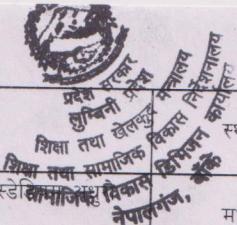 प्रदेश सरकार
लुम्बिनी प्रदेश
शिक्षा तथा खेलकुद मन्त्रालय
शिक्षा तथा सामाजिक विकास निर्देशनालय
सामाजिक विकास डिभिजन कार्यालय
नेपालगंज, बाँके